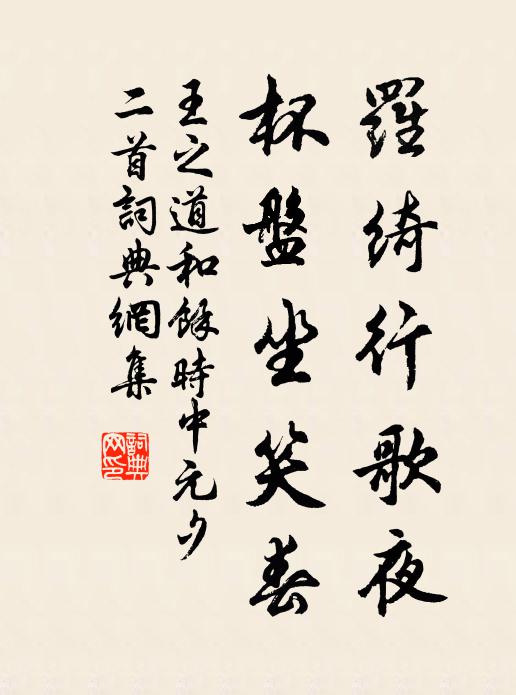 羅綺行歌夜
杯盤坐笑春
王之道和餘時中元夕
二首詞典網集
詞典網印